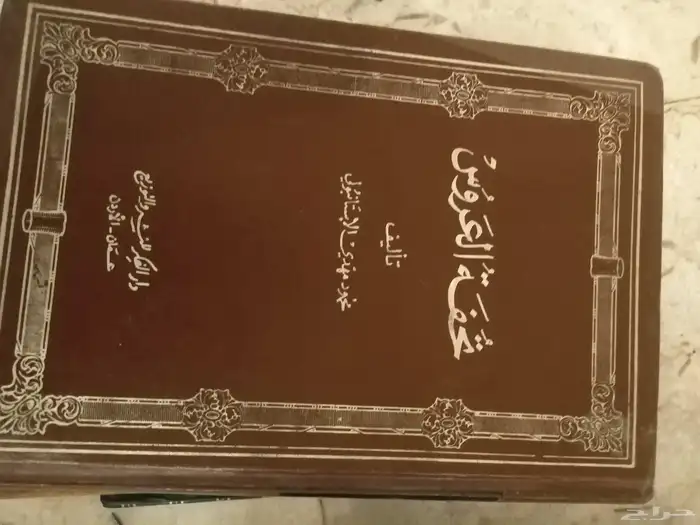 تحفة العروس
تأليف
محمود مهدي الاستانبولي
دار الفكر للنشر والتوزيع
عمّان - الأردن
حراج